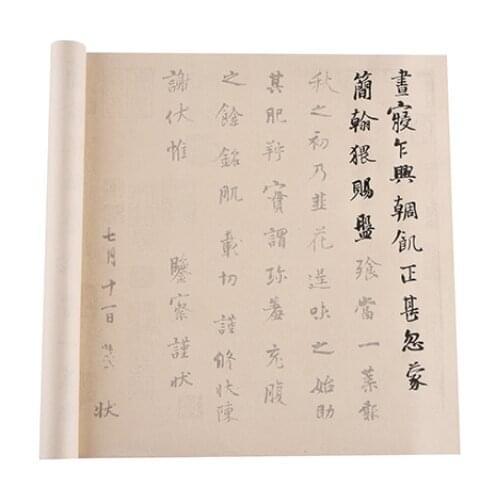 晝寢乍興輖飢正甚忽蒙
簡翰猥賜盤飧當一葉報
秋之初乃韭花逞味之始助
其肥羜實謂珍羞充腹
之餘銘肌載切謹修狀陳
謝伏惟 鑒察謹狀
七月十一日 狀